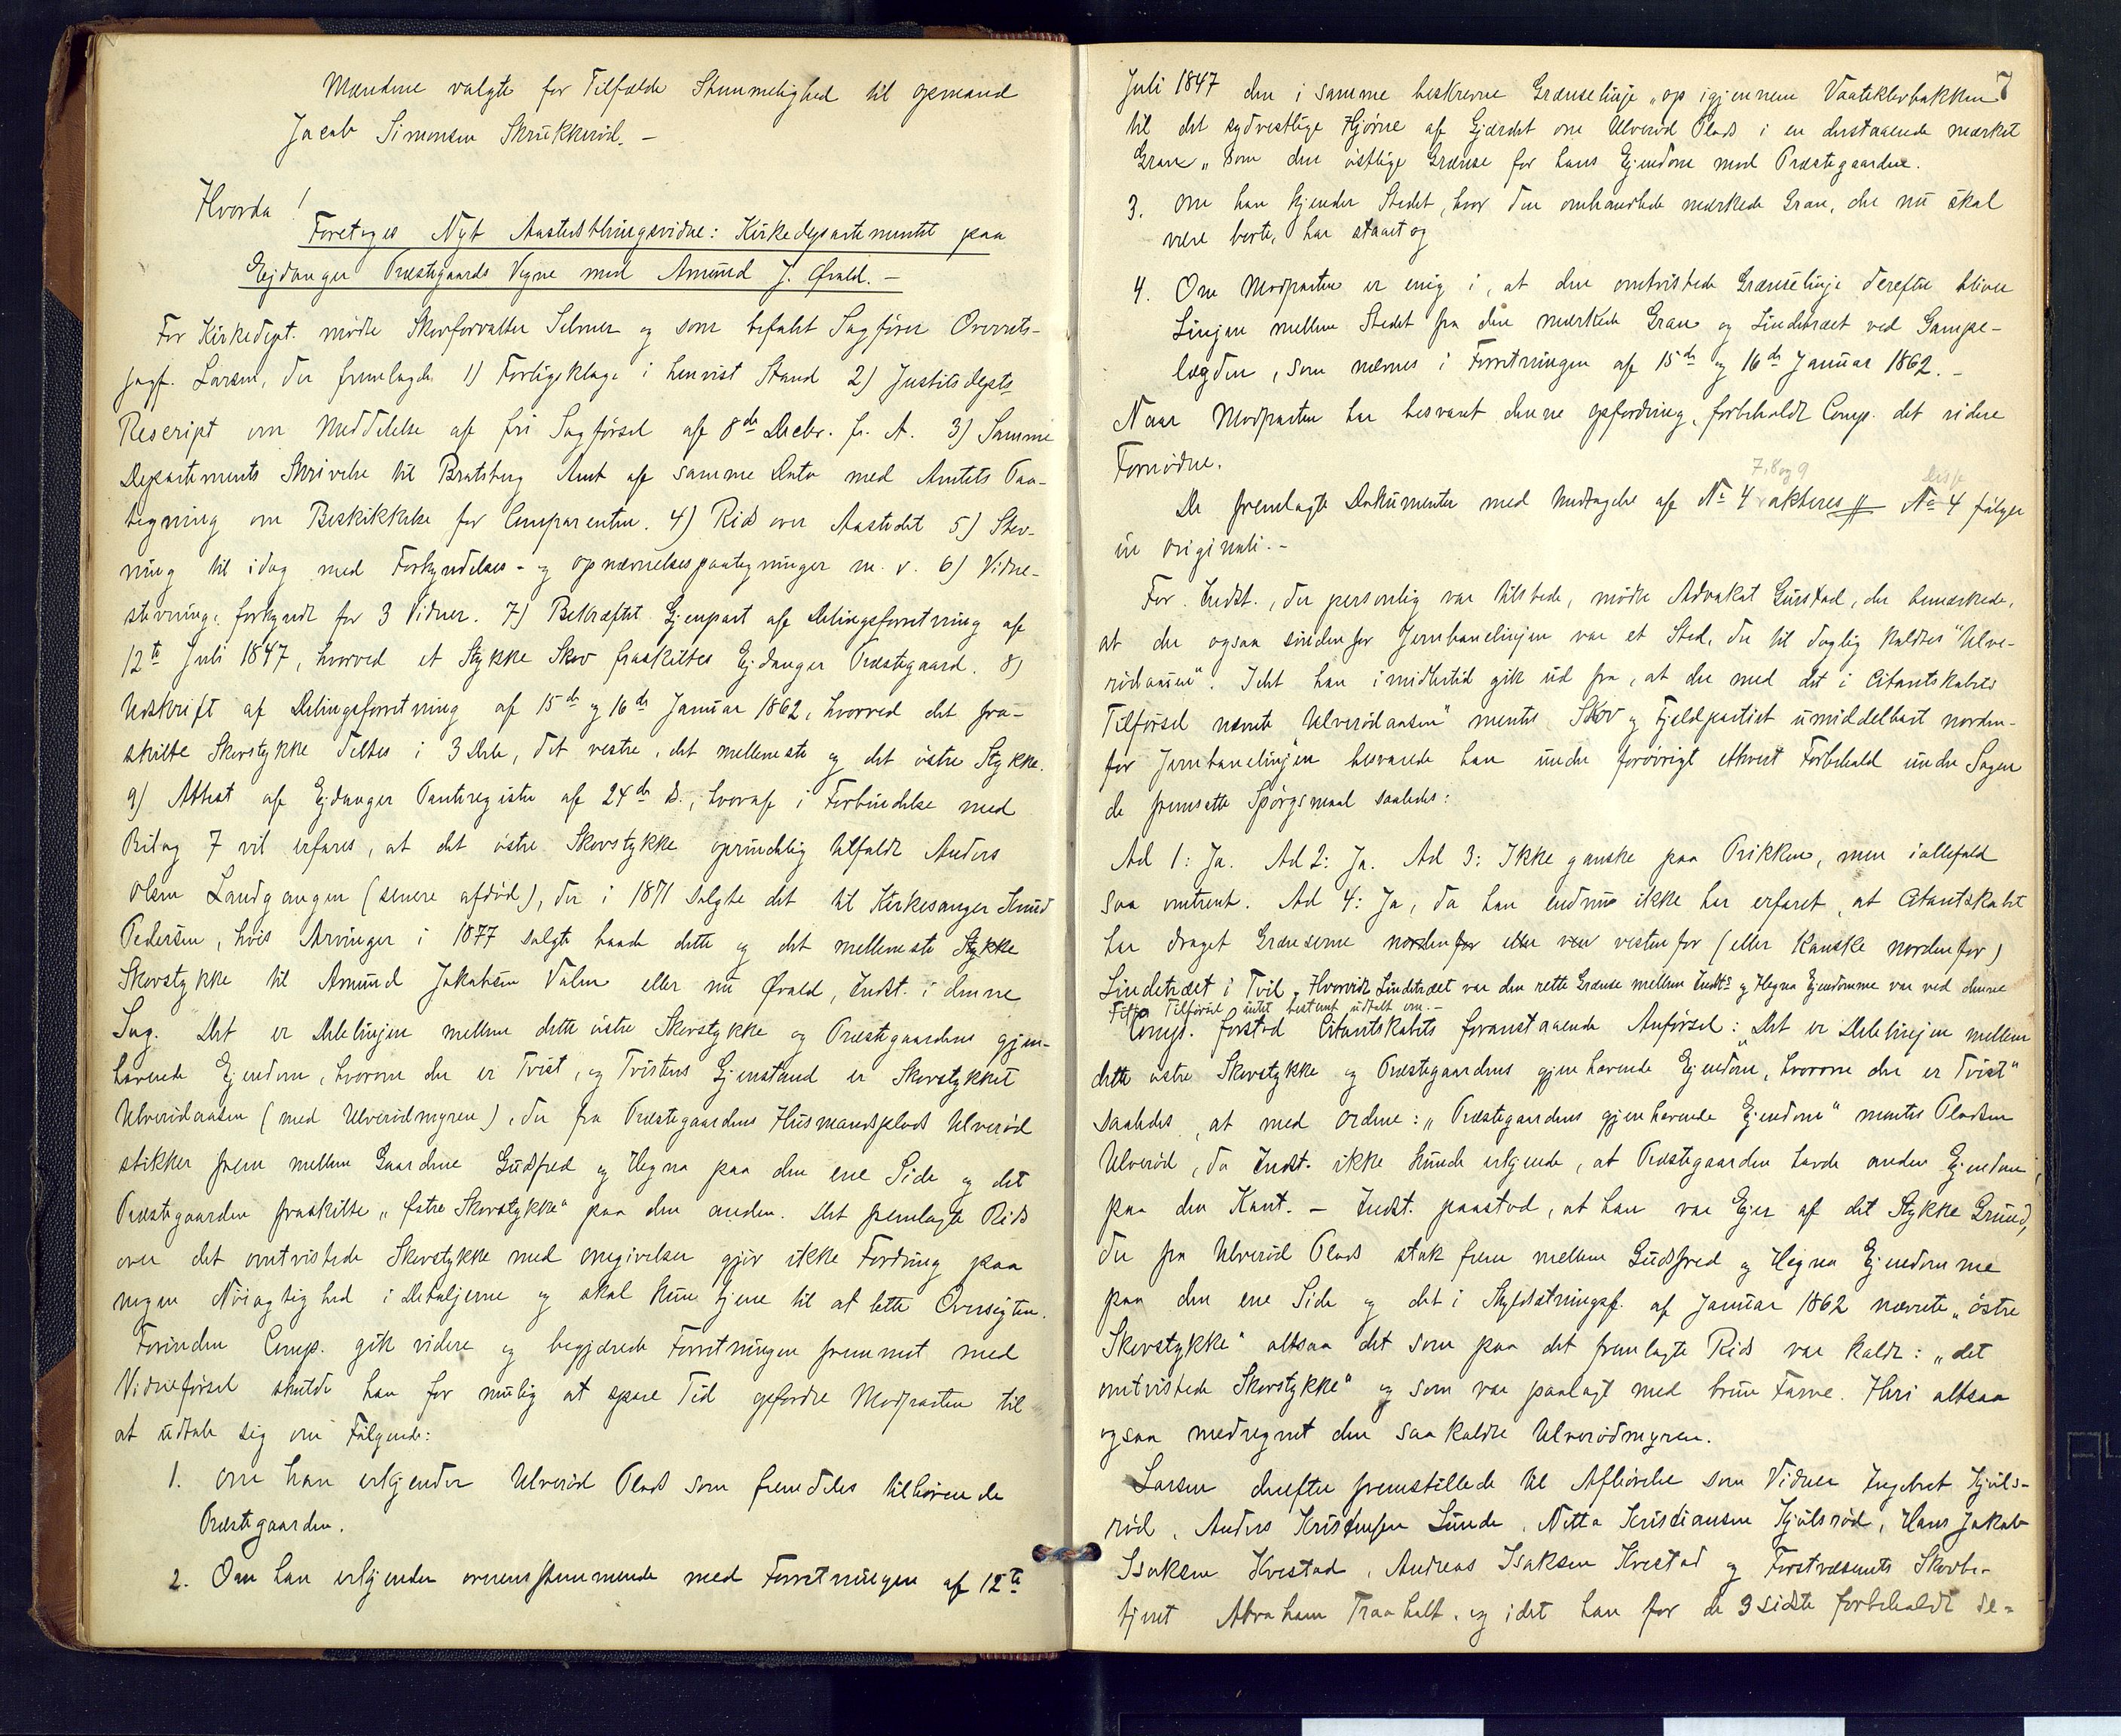 Mændene valgte for Tilfælde Stemmelighed til Opmand
Jacob Simonsen Skrukkerød. –
Hvorda!
Foretoges Nyt Aastedsthingsvidne: Kirkedepartementet paa
Ejdanger Præstegaards Vegne mod Amund J. Øvald. –
For Kirkedept. mødte Skovforvalter Selmer og som befalet Sagfører Overrets-
sagf. Larsen, der fremlagde 1) Forligsklage i henvist Stand 2) Justitsdepts
Rescript om Meddelelse af fri Sagførsel af 8de Decbr. f. A. 3) Samme
Departements Skrivelse til Bratsberg Amt af samme Dato med Amtets Paa-
tegning om Beskikkelse for Comparenten. 4) Rids over Aastedet 5) Stev-
ning til idag med Forkyndelses- og Opnævnelsespaategninger m. v. 6) Vidne-
stevning, forkyndt for 3 Vidner. 7) Bekræftet Gjenpart af Delingsforretning af
12te Juli 1847, hvorved et Stykke Skov fraskiltes Ejdanger Præstegaard. 8)
Udskrift af Delingsforretning af 15de og 16de Januar 1862, hvorved det fra-
skilte Skovstykke deltes i 3 Dele, det vestre, det mellemste og det östre Stykke.
9) Attest af Ejdanger Panteregister af 24de ds., hvoraf i Forbindelse med
Bilag 7 vil erfares, at det östre Skovstykke oprindelig tilfaldt Anders
Olsen Landgangen (senere afdöd), der i 1871 solgte det til Kirkesanger Knud
Pedersen, hvis Arvinger i 1877 solgte baade dette og det mellemste Stykke
Skovstykke til Amund Jakobsen Valen eller nu Øvald, Indst. i denne
Sag. Det er Delelinjen mellem dette östre Skovstykke og Præstegaardens gjen-
havende Ejendom, hvorom der er Tvist, og Tvistens Gjenstand er Skovstykket
Ulverödaasen (med Ulverödmyren), der fra Præstegaardens Husmandsplads Ulveröd
stikker frem mellem Gaardene Gudsfred og Hegna paa den ene Side og det
Præstegaarden fraskilte „Østre Skovstykke" paa den anden. Det fremlagte Rids
over det omtvistede Skovstykke med Omgivelser gjör ikke Fordring paa
nogen Nöiagtighed i Detaljerne og skal kun tjene til at lette Oversigten.
Forinden Comp. gik videre og begjærede Forretningen fremmet med
Vidneførsel skulde han for mulig at spare Tid opfordre Modparten til
at udtale sig om Fölgende:
1. Om han erkjender Ulveröd Plads som fremdeles tilhörende
Præstegaarden.
2. Om han erkjender overensstemmende med Forretningen af 12te
7
Juli 1847 den i samme beskrevne Grænselinje „op igjennem Vaateklevbakken
til det sydvestlige Hjörne af Gjærdet om Ulveröd Plads i en derstaaende mærket
Gran„ som den östlige Grænse for hans Ejendom mod Præstegaarden.
3. Om han kjender Stedet, hvor den omhandlede mærkede Gran, der nu skal
være borte, har staaet og
4. Om Modparten er enig i, at den omtvistede Grænselinje derefter bliver
Linjen mellem Stedet fra den mærkede Gran og Lindetræet ved Gampe-
lægden, som nævnes i Forretningen af 15de og 16de Januar 1862. –
Naar Modparten har besvaret denne Opfordring, forbeholdt Comp. det videre
Fornødne.
De fremlagte Dokumenter med Undtagelse af No 4 7, 8 og 9 akteres // Disse No 4 følger
in originali. –
For Indst., der personlig var tilstede, mødte Advokat Gurstad, der bemærkede,
at der ogsaa söndenfor Jernbanelinjen var et Sted, der til daglig kaldtes "Ulve-
rödaasen". Idet han imidlertid gik ud fra, at der med det i Citantskabets
Tilförsel nævnte Ulverödaasen" mentes Skov og Fjeldpartiet umiddelbart norden-
for Jernbanelinjen besvarede han under foröuvrigt ethvert Forbehold under Sagen
de fremsatte Spörgsmaal saaledes:
Ad 1: Ja. Ad 2: Ja. Ad 3: Ikke ganske paa Prikken, men iallefald
saa omtrent. Ad 4: Ja, da han endnu ikke har erfaret, at Citantskabet
har draget Grænserne nordenfor eller ven vestenfor (eller Kanske nordenfor)
Lindetræet i Tvil. Hvorvidt Lindetræet var den rette Grænse mellem Indts og Hegna Ejendomme var ved denne
Tilförsel intet bestemt udtalt om. –
Comp. forstod Citantskabets foranstaaende Anförsel: „Det er Delelinjen mellem
dette östre Skovstykke og Præstegaardens gjenhavende Ejendom, hvorom der er Tvist"
saaledes, at med Ordene: „Præstegaardens gjenhavende Ejendom" mentes Pladsen
Ulveröd, da Indst. ikke kunde erkjende, at Præstegaarden havde anden Ejendom
paa den Kant. – Indst. paastod, at han var Ejer af det Stykke Grund,
der fra Ulveröd Plads stak frem mellem Gudsfred og Hegna Ejendomme
paa den ene Side og det i Skyldsætningsf. af Januar 1862 nævnte „östre
Skovstykke" altsaa det som paa det fremlagte Rids var kaldt: „det
omtvistede Skovstykke" og som var paalagt med brun Farve. Heri altsaa
ogsaa medregnet den saakaldte Ulverödmyren.
Larsen derefter fremstillede til Afhörelse som Vidner Ingebret Kjöls-
röd, Anders Kristensen Lunde, Netta Kristiansen Kjölsröd, Hans Jakob
Isaksen Kvestad, Andreas Isaksen Kvestad og Forstvæsenets Skovbe-
tjent Abraham Traaholt, og idet han for de 3 sidste forbeholdt de-